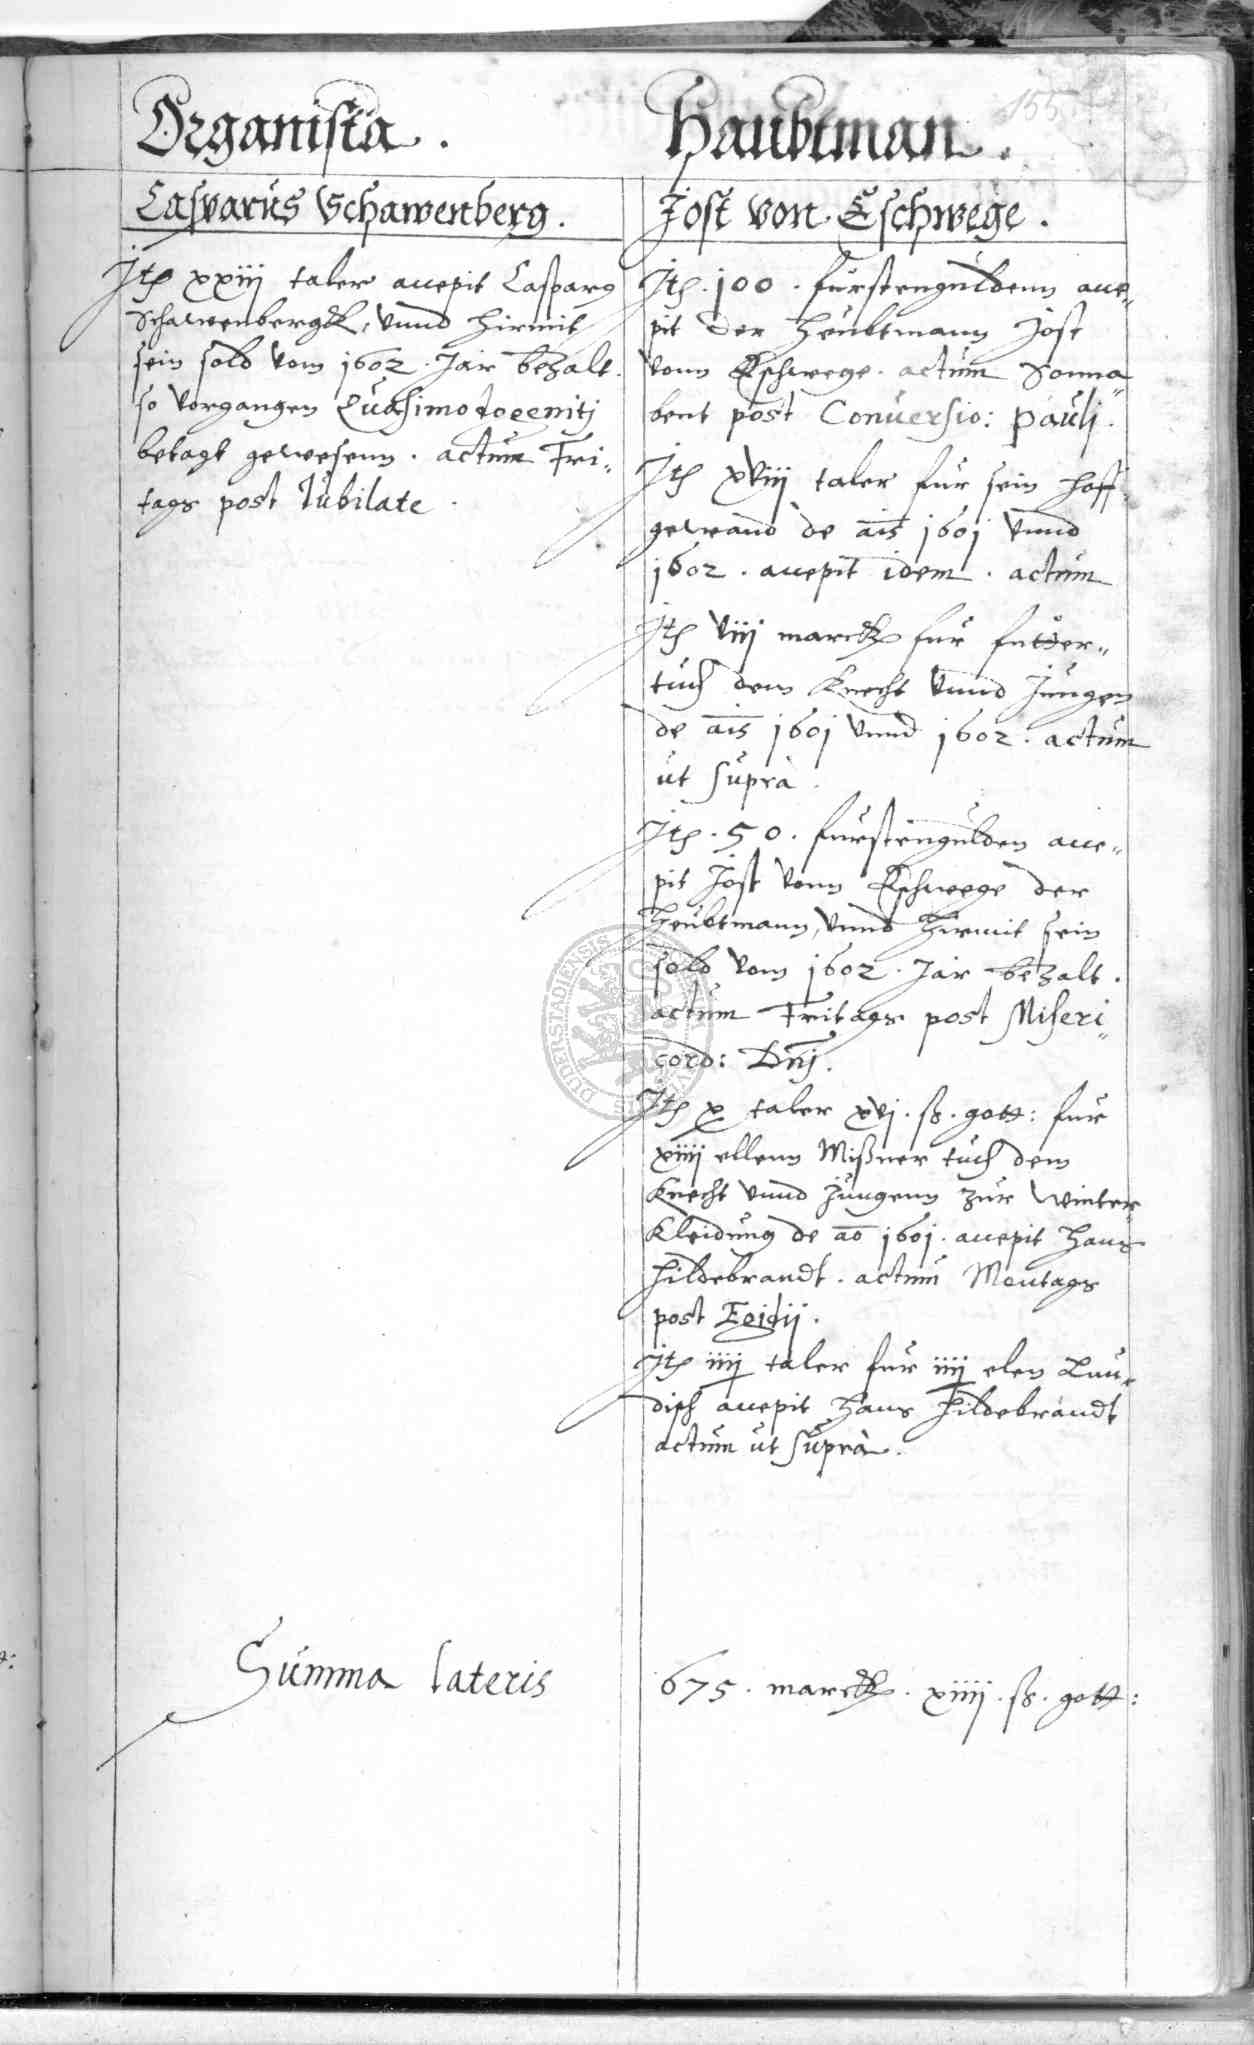 155
Organista.
Casparus Schawenberg.
Itē xxiij taler accepit Casparg
Schawenbergck, vnnd hirmit
sein sold vom 1602. Jar bezalt.
so vorgangen Quasimodogenitj
betagt gewesenn. actum Fri„
tags post Iubilate.
Haubtman.
Jost von Eschwege.
Itē. 100. furstenguldenn acce„
pit der Heubtmann Jost
vonn Eschwege. actum Sonna„
bent post Conuersio: Paulj.
Itē xviij taler fur sein hoff„
gewand de ais 1601 vnnd
1602. accepit idem. actum
Itē viij marck fur futter„
tuch dem Knecht vnnd Jungen
de ais 1601 vnnd 1602. actum
ut suprà.
Itē. 50. furstengulden acce„
pit Jost vonn Eschwege der
Heubtmann, vnnd hirmit sein
sold vom 1602. Jar bezalt.
actum Fritags post Miseri„
cord: Dnj.
Itē x taler xvj. ß. gott: fur
xiiij ellenn Mißner tuch dem
Knecht vnnd Jungenn zur winter„
Kleidung de ao 1601. accepit Hans
Hildebrandt. actum Montags
post Egidij.
Itē iiij taler fur iiij elen Lun„
disch accepit Hans Hildebrandt
actum ut suprà.
Summa lateris 675. marck. xiiij. ß. gott:
DUDERSTADIENSIS